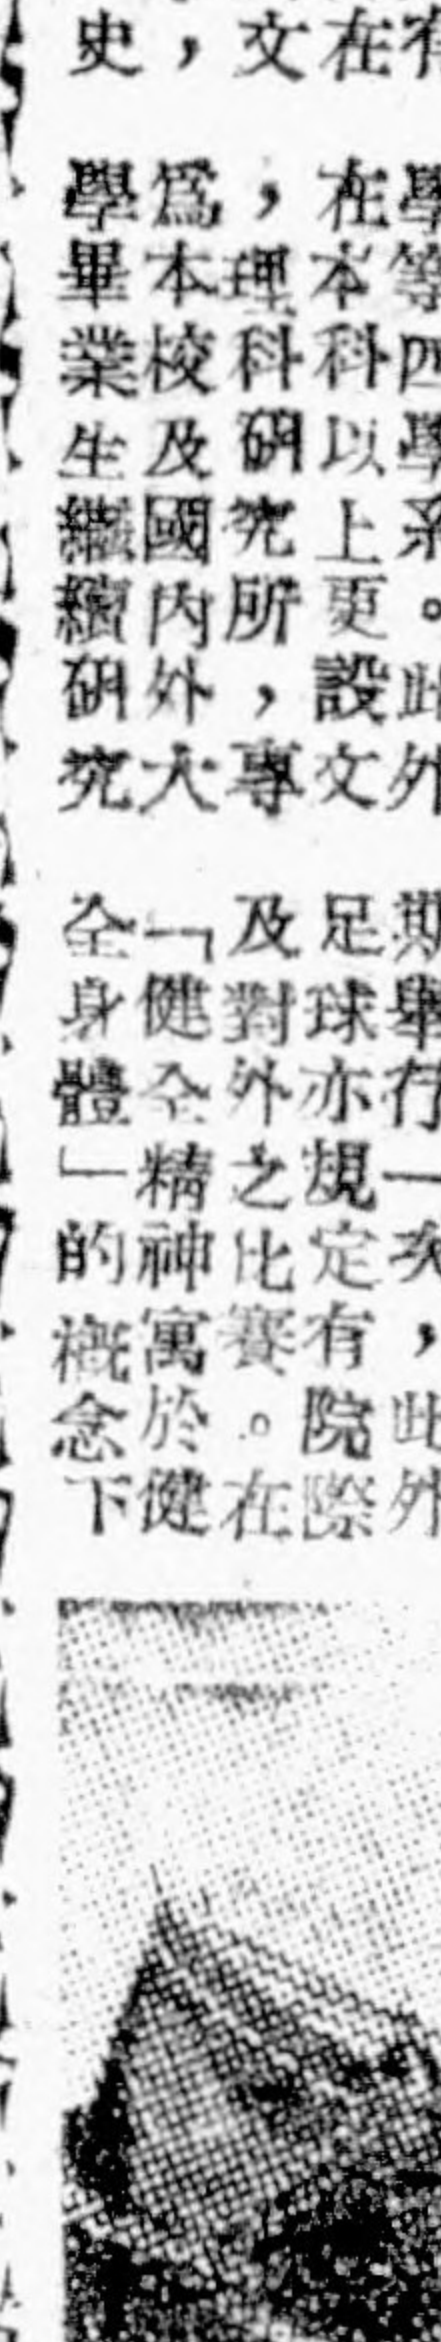 有
在
文
史，
學等四學系。此外
在本科以上更設文
，理科研究所，專
爲本校及國內外大
學畢業生繼續研究
期舉行一次，此外
足球亦規定有院際
及對外之比賽。在
「健全精神寓於健
全身體」的概念下